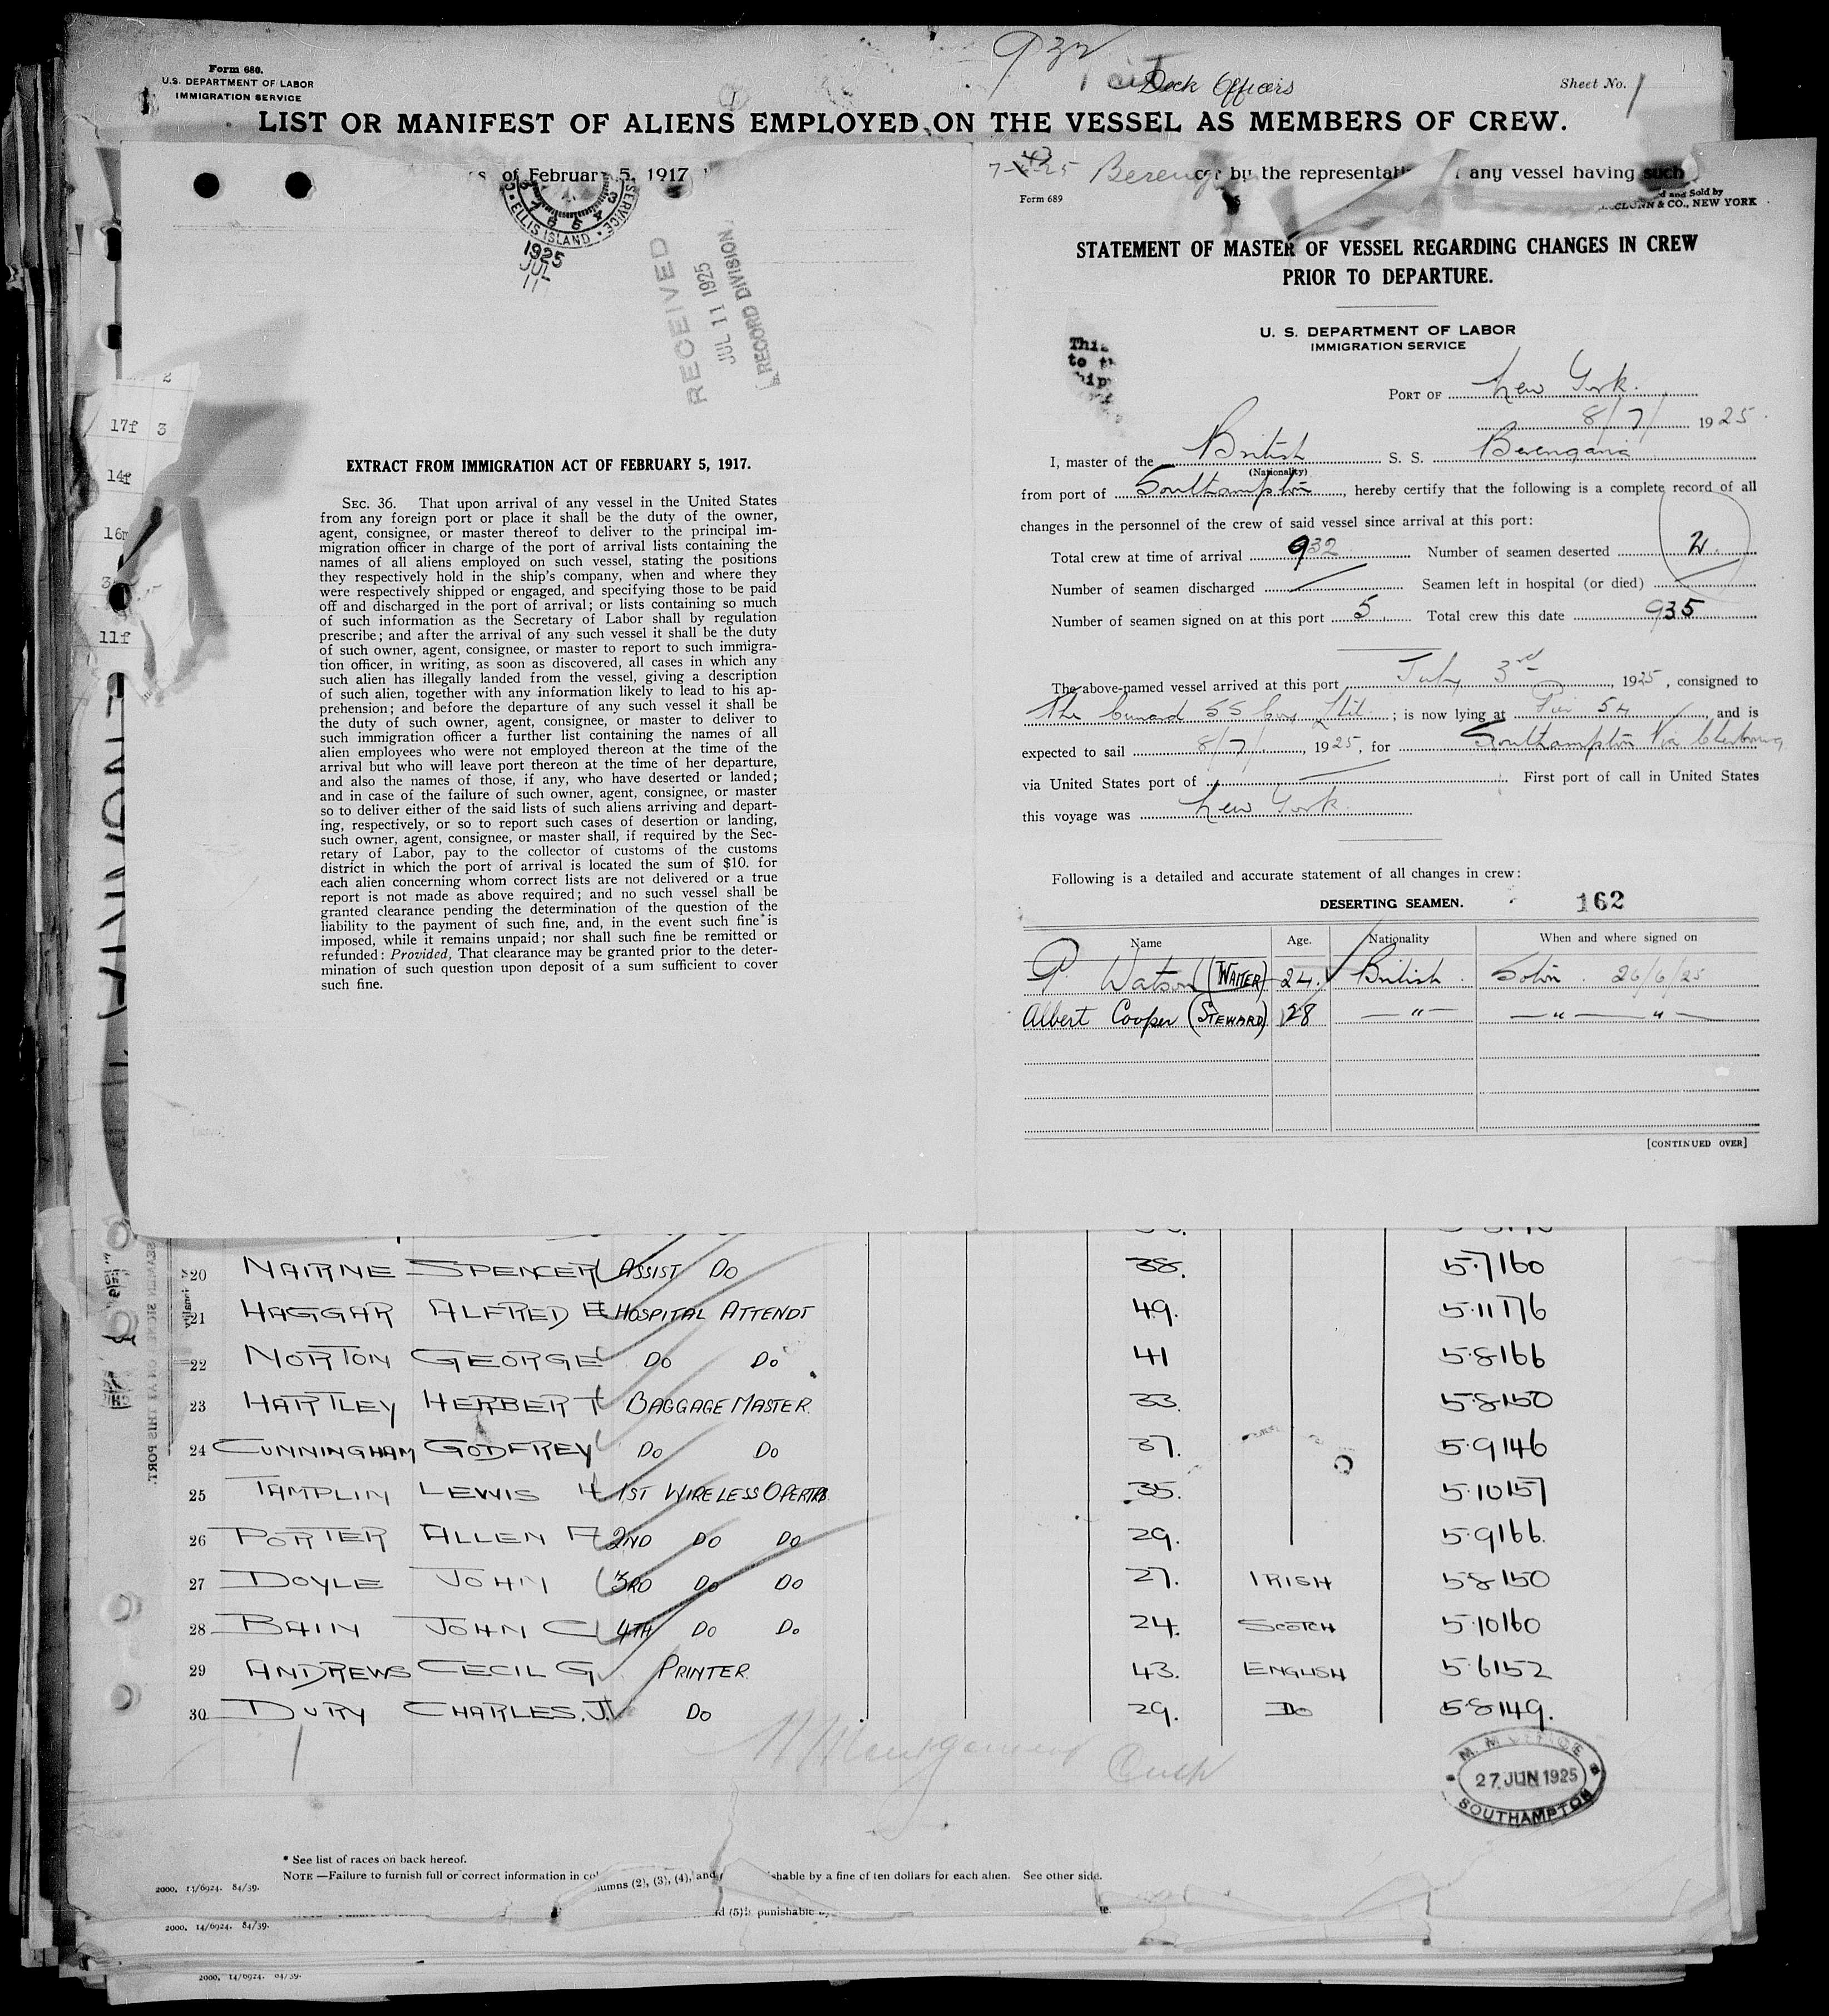 932
Form 680.
U.S. DEPARTMENT OF LABOR
IMMIGRATION SERVICE
Deck Officers
Sheet No. 1
LIST OR MANIFEST OF ALIENS EMPLOYED ON THE VESSEL AS MEMBERS OF CREW.
of February 5, 1917
by the representati
any vessel having such
Sold by
& CO., NEW YORK
SERVICE
ELLIS ISLAND
1925
JUL
11
RECEIVED
JUL 11 1925
RECORD DIVISION
2
17f 3
14f
16m
3
11f
EXTRACT FROM IMMIGRATION ACT OF FEBRUARY 5, 1917.
SEC. 36. That upon arrival of any vessel in the United States
from any foreign port or place it shall be the duty of the owner,
agent, consignee, or master thereof to deliver to the principal im-
migration officer in charge of the port of arrival lists containing the
names of all aliens employed on such vessel, stating the positions
they respectively hold in the ship's company, when and where they
were respectively shipped or engaged, and specifying those to be paid
off and discharged in the port of arrival; or lists containing so much
of such information as the Secretary of Labor shall by regulation
prescribe; and after the arrival of any such vessel it shall be the duty
of such owner, agent, consignee, or master to report to such immigra-
tion officer, in writing, as soon as discovered, all cases in which any
such alien has illegally landed from the vessel, giving a description
of such alien, together with any information likely to lead to his ap-
prehension; and before the departure of any such vessel it shall be
the duty of such owner, agent, consignee, or master to deliver to
such immigration officer a further list containing the names of all
alien employees who were not employed thereon at the time of the
arrival but who will leave port thereon at the time of her departure,
and also the names of those, if any, who have deserted or landed;
and in case of the failure of such owner, agent, consignee, or master
so to deliver either of the said lists of such aliens arriving and depart-
ing, respectively, or so to report such cases of desertion or landing,
such owner, agent, consignee, or master shall, if required by the Sec-
retary of Labor, pay to the collector of customs of the customs
district in which the port of arrival is located the sum of $10. for
each alien concerning whom correct lists are not delivered or a true
report is not made as above required; and no such vessel shall be
granted clearance pending the determination of the question of the
liability to the payment of such fine, and, in the event such fine is
imposed, while it remains unpaid; nor shall such fine be remitted or
refunded: Provided, That clearance may be granted prior to the deter-
mination of such question upon deposit of a sum sufficient to cover
such fine.
Form 689
STATEMENT OF MASTER OF VESSEL REGARDING CHANGES IN CREW
PRIOR TO DEPARTURE.
U. S. DEPARTMENT OF LABOR
IMMIGRATION SERVICE
PORT OF New York.
8/7/ 1925
I, master of the British S. S. Berengaria
(Nationality)
from port of Southampton, hereby certify that the following is a complete record of all
changes in the personnel of the crew of said vessel since arrival at this port:
Total crew at time of arrival 932 Number of seamen deserted 2.
Number of seamen discharged — Seamen left in hospital (or died) —
Number of seamen signed on at this port 5 Total crew this date 935
The above-named vessel arrived at this port July 3rd, 1925, consigned to
The Cunard SS Coy Ltd.; is now lying at Pier 54, and is
expected to sail 8/7/, 1925, for Southampton Via Cherbourg
via United States port of —. First port of call in United States
this voyage was New York.
Following is a detailed and accurate statement of all changes in crew:
DESERTING SEAMEN. 162
Name Age. Nationality When and where signed on
P. Watson (WAITER) 24. British Soton. 26/6/25
Albert Cooper (STEWARD) 28 — " — — " — " —
[CONTINUED OVER]
20 NAIRNE SPENCER ASSIST DO 38. 5.7 160
21 HAGGAR ALFRED E HOSPITAL ATTENDT 49. 5.11 176
22 NORTON GEORGE DO DO 41 5.8 166
23 HARTLEY HERBERT BAGGAGE MASTER. 33. 5.8 150
24 CUNNINGHAM GODFREY DO DO 37. 5.9 146
25 TAMPLIN LEWIS H 1ST WIRELESS OPERTRS 35. 5.10 157
26 PORTER ALLEN A 2ND DO DO 29. 5.9 166.
27 DOYLE JOHN 3RD DO DO 27. IRISH 5.8 150
28 BAIN JOHN C 4TH DO DO 24. SCOTCH 5.10 160
29 ANDREWS CECIL G PRINTER 43. ENGLISH 5.6 152
30 DURY CHARLES.J. DO 29. DO 5.8 149.
27 JUN 1925
SOUTHAMPTON
* See list of races on back hereof.
NOTE—Failure to furnish full or correct information in columns (2), (3), (4), and shable by a fine of ten dollars for each alien. See other side.
2000. 14/6924. 84/39.
(5) punishable
2000. 14/6924. 84/39.
2000. 14/6924. 84/39.